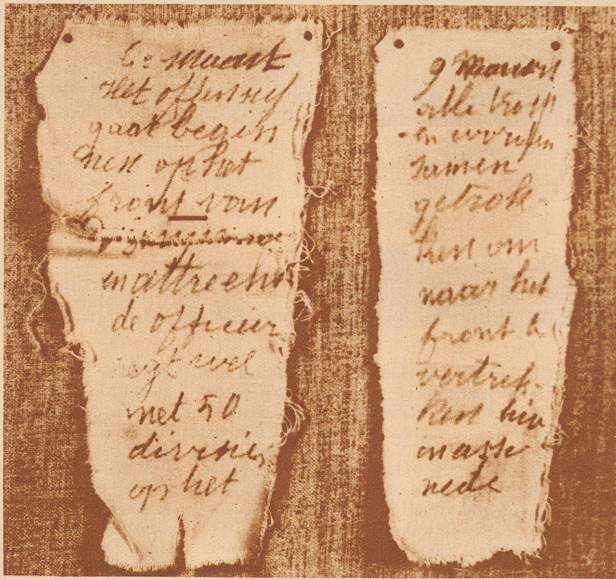 6e maart
Het offensief
gaat begin
nen op het
front van
mattrecht
de officier
zegt wel
met 50
divisies
op het
9 Maart
alle
en worden
samen
getrok-
ken om
naar het
front te
vertrek-
ken hier
en
nede